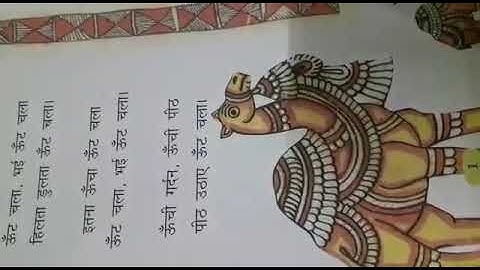 ऊँट चला, भई ऊँट चला
हिलता डुलता ऊँट चला।
इतना ऊँचा ऊँट चला
ऊँट चला, भई ऊँट चला।
ऊँची गर्दन, ऊँची पीठ
पीठ उठाए ऊँट चला।
1